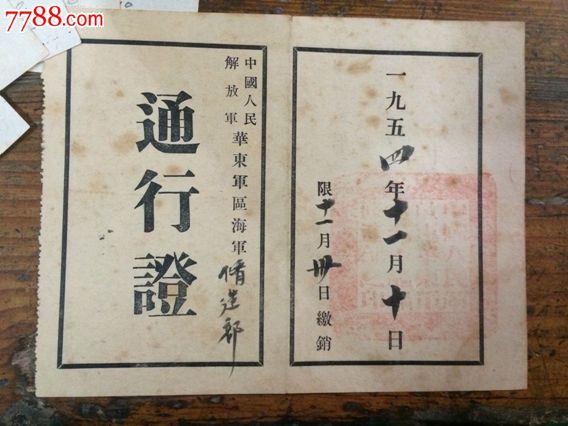 7788.com
中國人民
解放軍
華東軍區海軍脩造部
通行證
一九五四年十一月十日
限十一月卅日繳銷